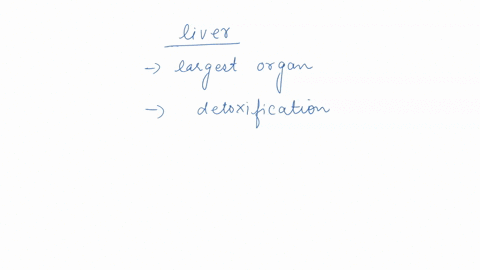 liver
→ largest organ
→ detoxification